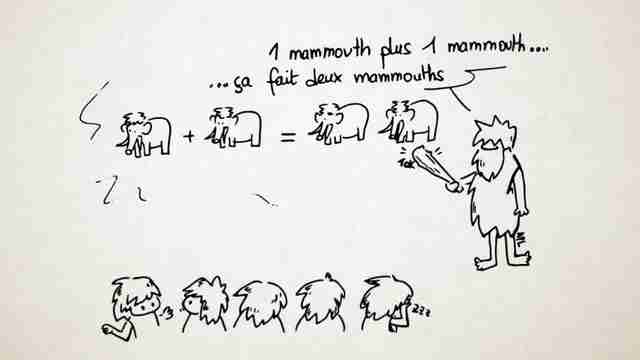 1 mammouth plus 1 mammouth....
...ça fait deux mammouths
+ =
Tok
zzz